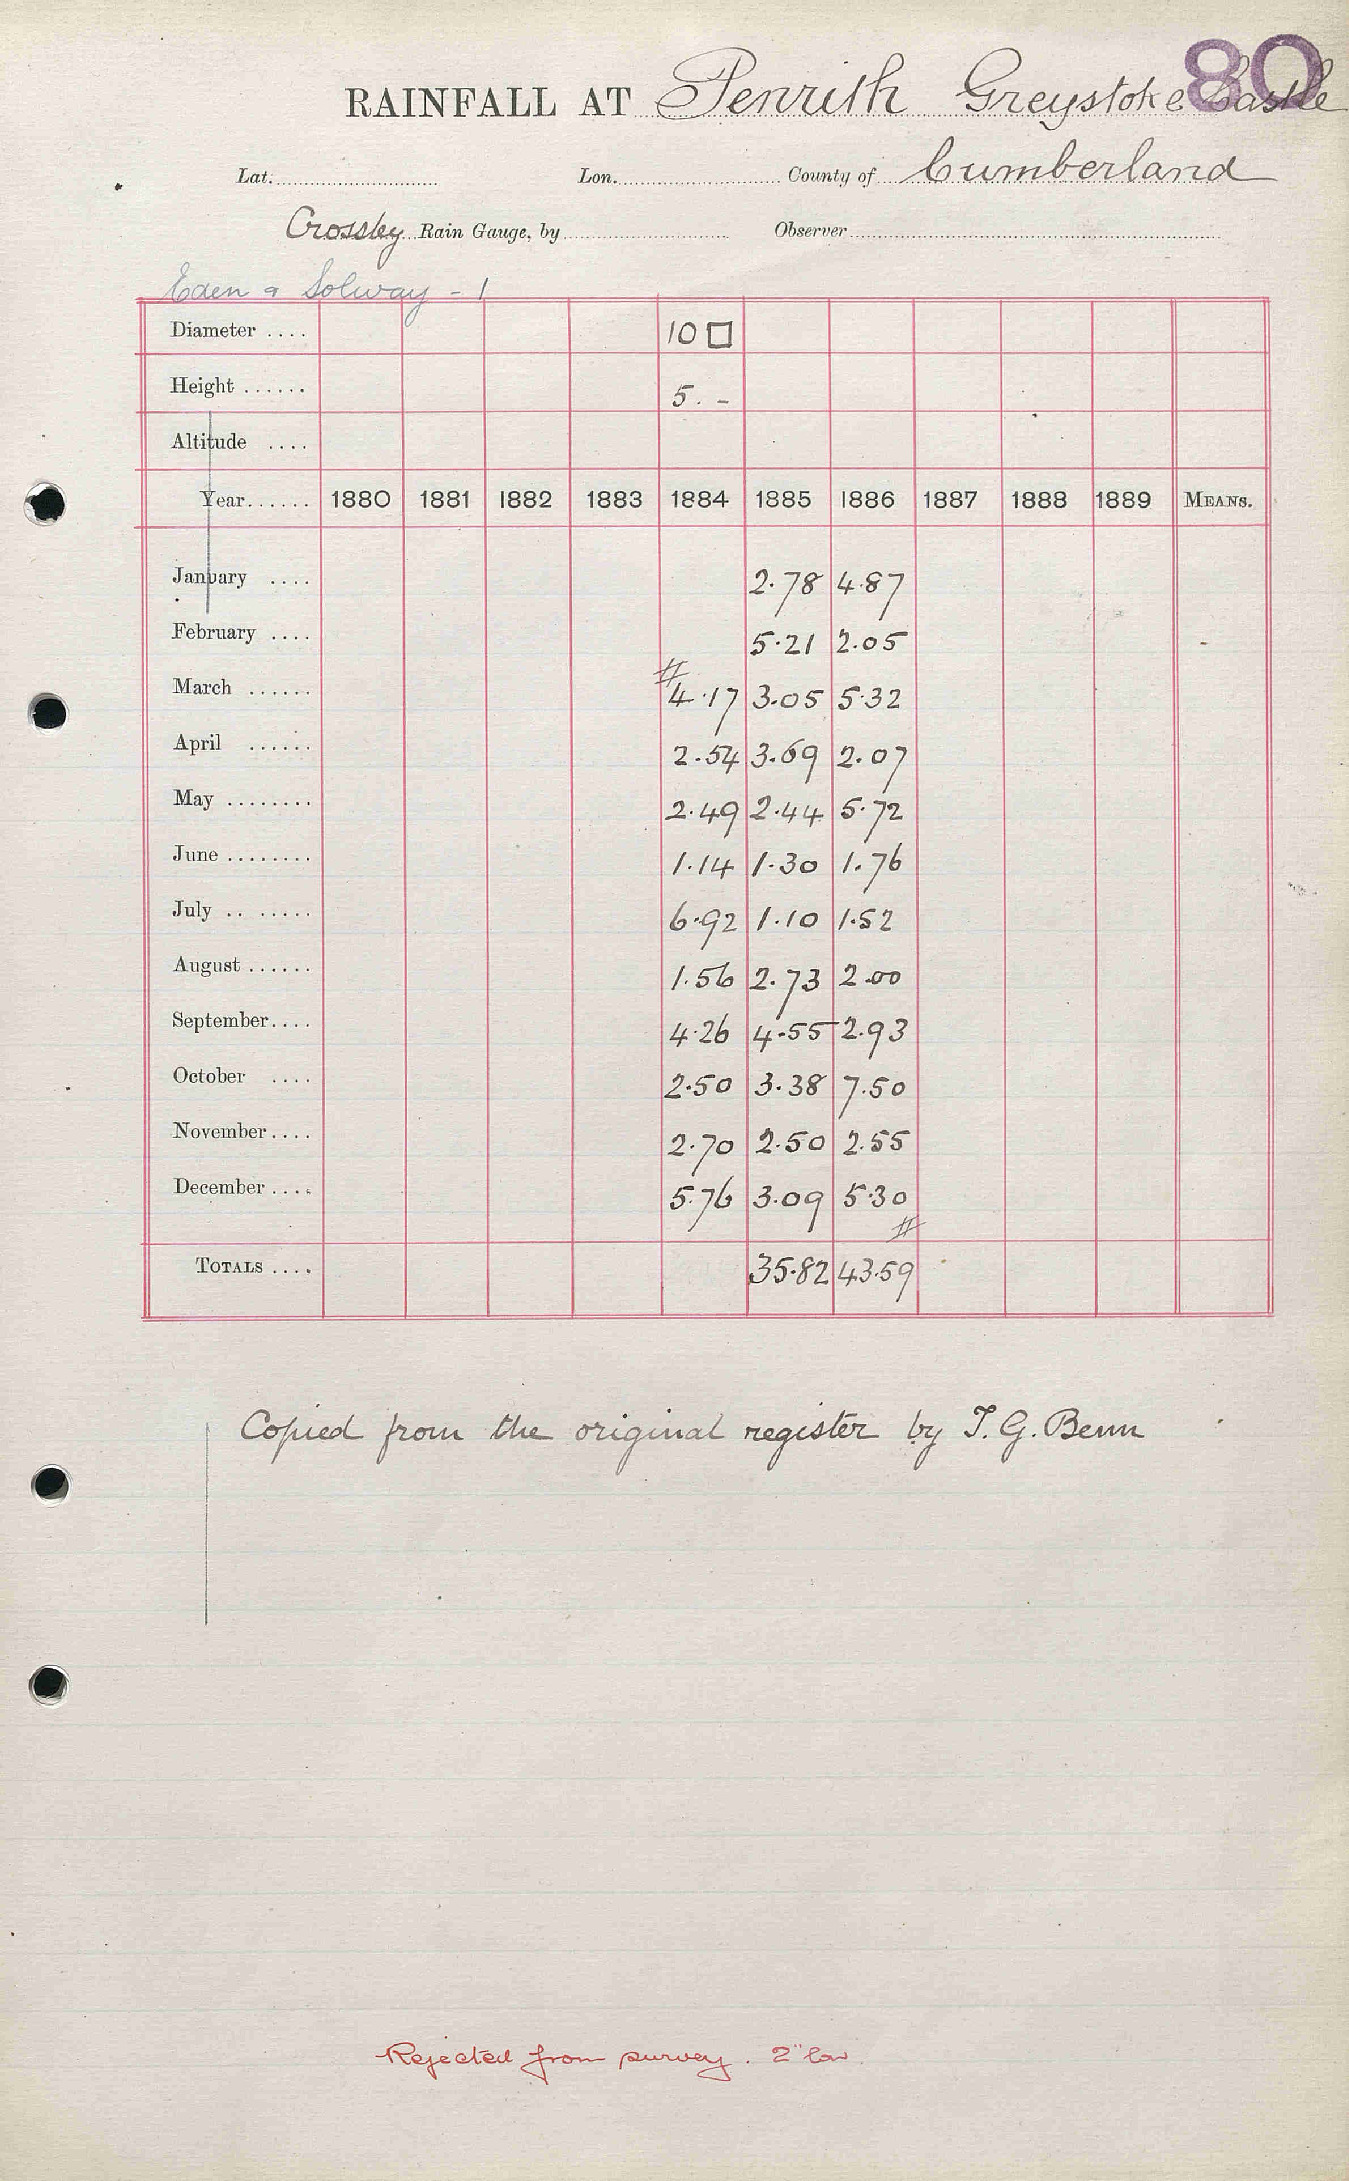 80
RAINFALL AT Penrith Greystoke Castle
Lat. Lon. County of Cumberland
Crossley Rain Gauge, by Observer
Eden & Solway - 1
Diameter .... 10 □
Height ...... 5. -
Altitude ....
Year...... 1880 1881 1882 1883 1884 1885 1886 1887 1888 1889 MEANS.
January .... 2.78 4.87
February .... 5.21 2.05
March ...... # 4.17 3.05 5.32
April ...... 2.54 3.69 2.07
May ........ 2.49 2.44 5.72
June ........ 1.14 1.30 1.76
July .. ..... 6.92 1.10 1.52
August ...... 1.56 2.73 2.00
September.... 4.26 4.55 2.93
October .... 2.50 3.38 7.50
November.... 2.70 2.50 2.55
December .... 5.76 3.09 5.30 #
TOTALS .... 35.82 43.59
Copied from the original register by T. G. Benn
Rejected from survey. 2" low